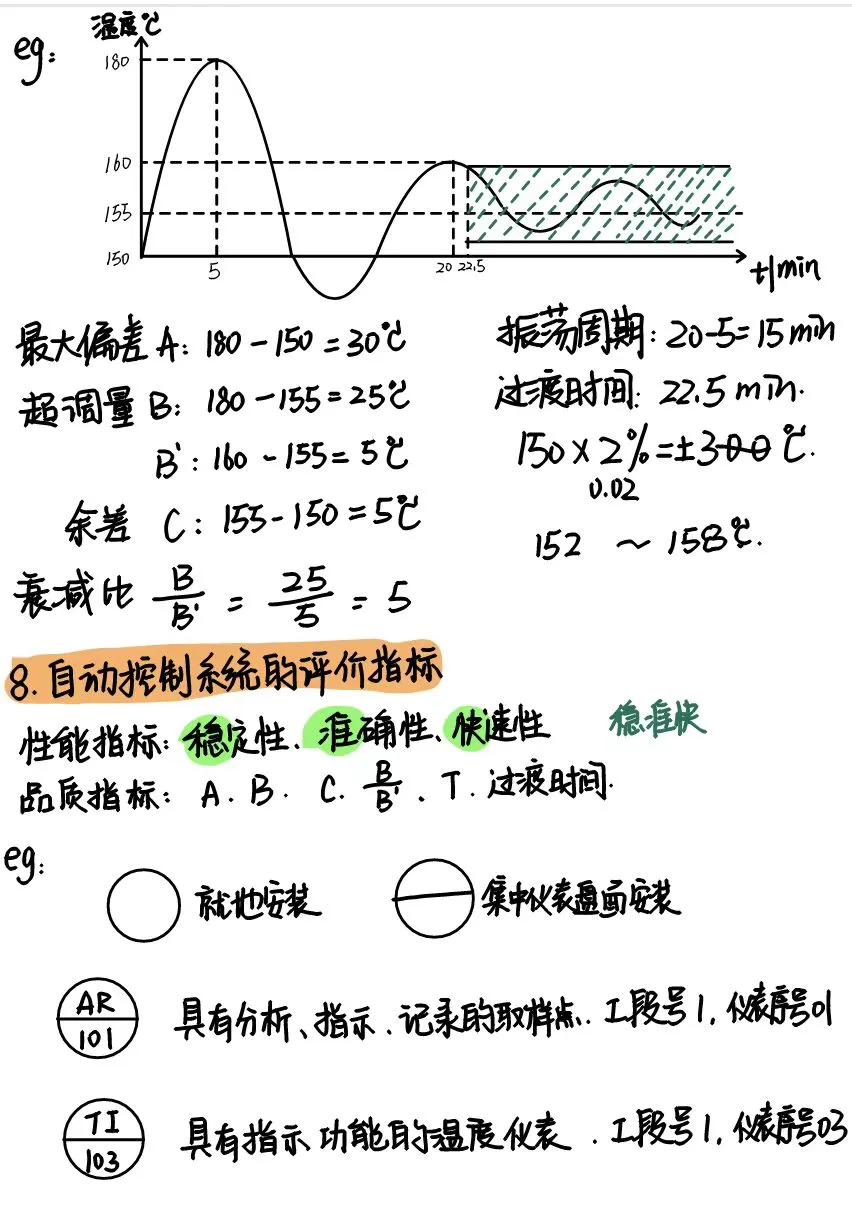 eg:
温度℃
180
160
155
150
5
20 22.5
t/min
最大偏差 A: 180-150=30℃
超调量 B: 180-155=25℃
B': 160-155=5℃
余差 C: 155-150=5℃
衰减比 B/B' = 25/5 = 5
振荡周期: 20-5=15min
过渡时间: 22.5min.
150×2%=±3℃.
0.02
152 ~ 158℃.
8.自动控制系统的评价指标
性能指标: 稳定性、准确性、快速性 稳准快
品质指标: A. B. C. B/B'. T. 过渡时间.
eg:
就地安装 集中仪表盘面安装
AR
101
具有分析、指示、记录的取样点. 工段号1, 仪表序号01
TI
103
具有指示功能的温度仪表. 工段号1, 仪表序号03